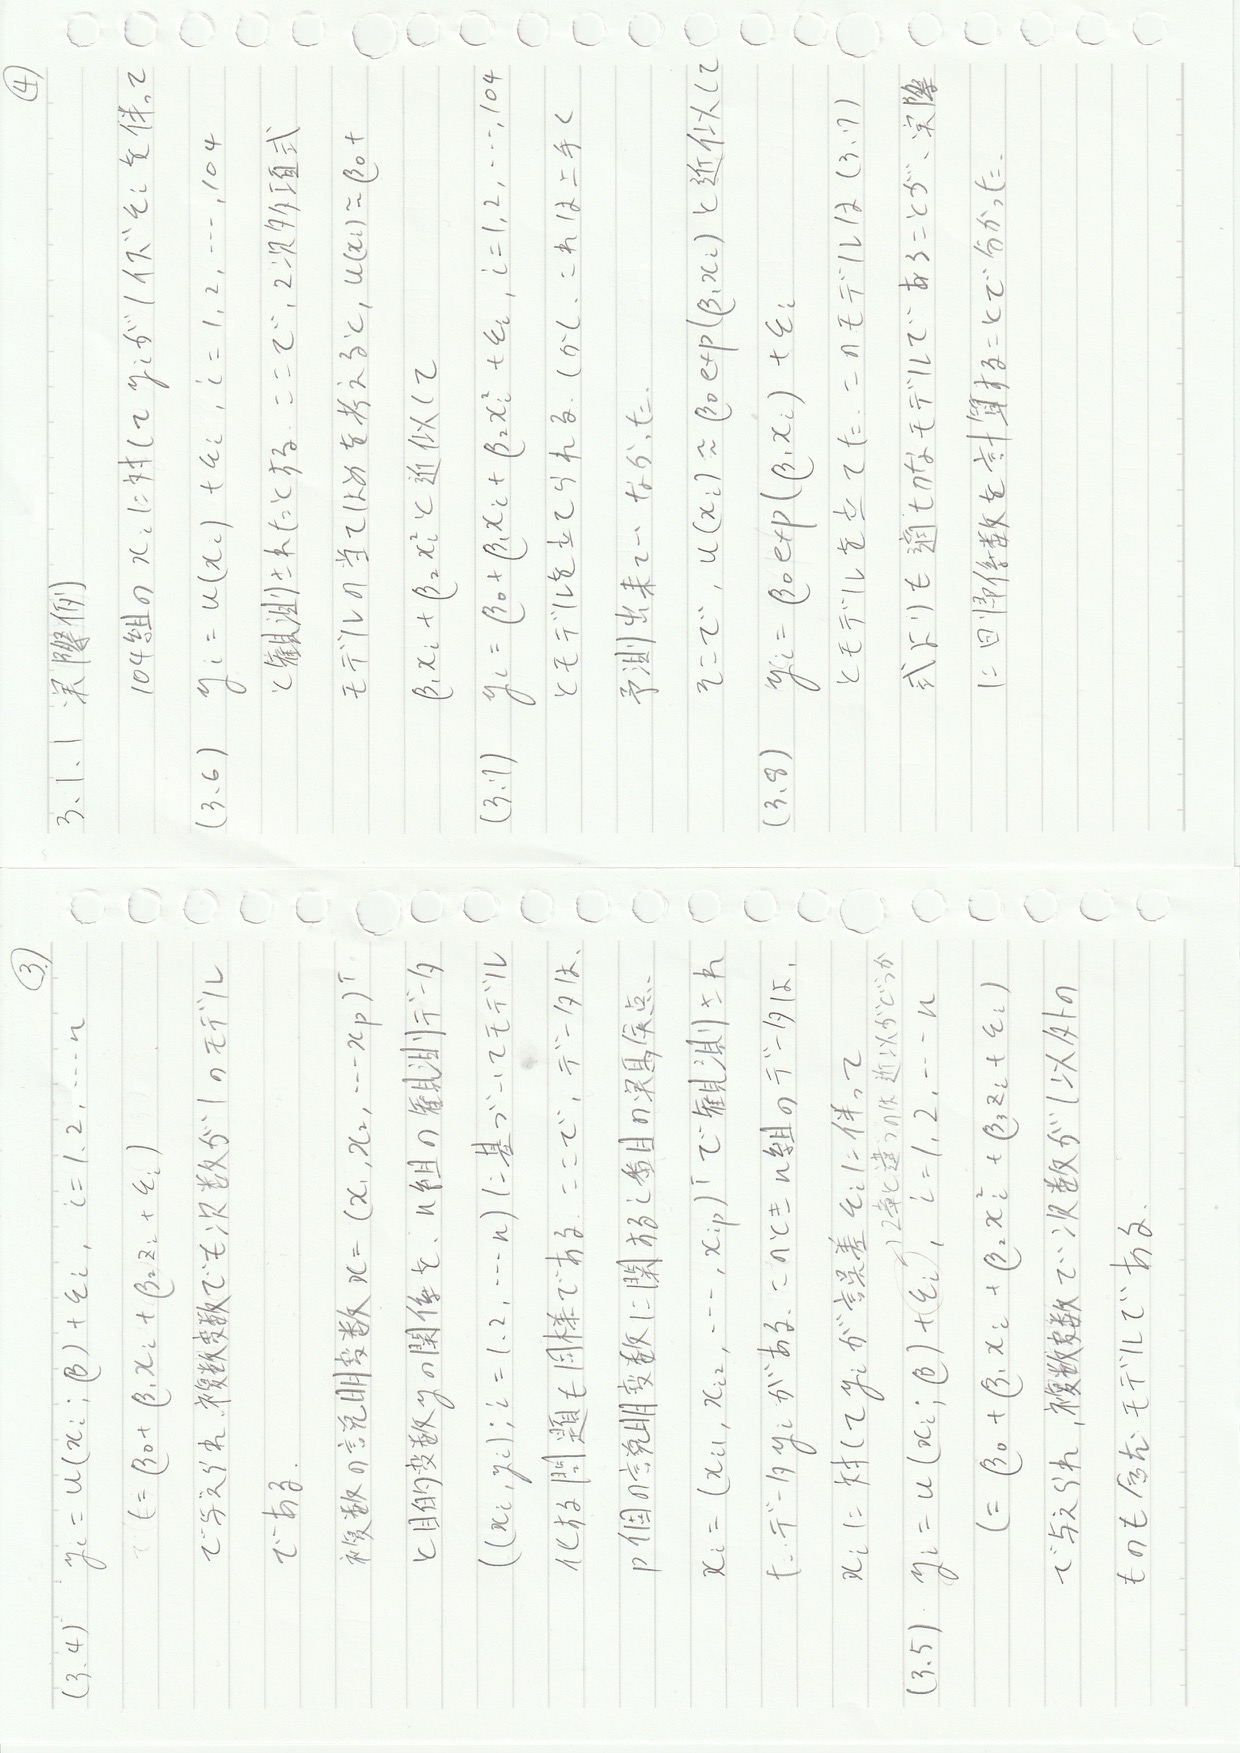 ③
(3.4) yi = u(xi; β) + εi, i = 1.2, …n
(= β0 + β1xi + β2zi + εi)
で与えられ、複数変数でも次数が1のモデル
である.
複数の説明変数 x = (x1, x2, …xp)ᵀ
と目的変数yの関係を、n組の観測データ
((xi, yi); i = 1.2, …n)に基づいてモデル
化する問題も同様である. ここで, データは、
p個の説明変数に関するi番目の実験点
xi = (xi1, xi2, …, xip)ᵀで観測され
たデータyiがある. このときn組のデータは,
xiに対してyiが誤差εiに伴って
→2章と違うのは近似かどうか
(3.5) yi = u(xi; β) + εi, i = 1, 2, …n
(= β0 + β1xi + β2xi² + β3zi + εi)
で与えられ, 複数変数で次数が1以外の
ものも含むモデルである.
④
3.1.1 実際例
104組のxiに対してyiがノイズεiを伴って
(3.6) yi = u(xi) + εi, i = 1, 2, …, 104
と観測されたとする. ここで, 2次多項式
モデルの当てはめを考えると, u(xi) ≈ β0 +
β1xi + β2xi²と近似して
(3.7) yi = β0 + β1xi + β2xi² + εi, i = 1, 2, …, 104
とモデルを立てられる. しかし、これは上手く
予測出来ていなかった.
そこで, u(xi) ≈ β0 exp(β1xi) と近似して
(3.8) yi = β0 exp(β1xi) + εi
とモデルを立てた. このモデルは (3.7)
式よりも適切なモデルであることが、実際
に回帰係数を計算することで分かった.